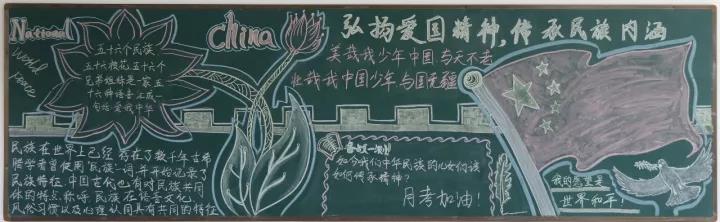 National
World
Peace
五十六个民族
五十六枝花五十六个
兄弟姐妹是一家五
十六种语言汇成一
句话爱我中华
China
弘扬爱国精神,传承民族内涵
美哉我少年中国与天不老
壮哉我中国少年与国无疆
民族在世界上已经存在了数千年古希
腊学者曾使用"民族"一词并开始记录了
民族特征,中国古代也有对民族共同
体的特点,称呼,民族在语言文化,
风俗习惯以及心理认同具有共同的特征
如今我们中华民族的儿女们该
如何传承精神?
月考加油!
我的愿望是
世界和平!